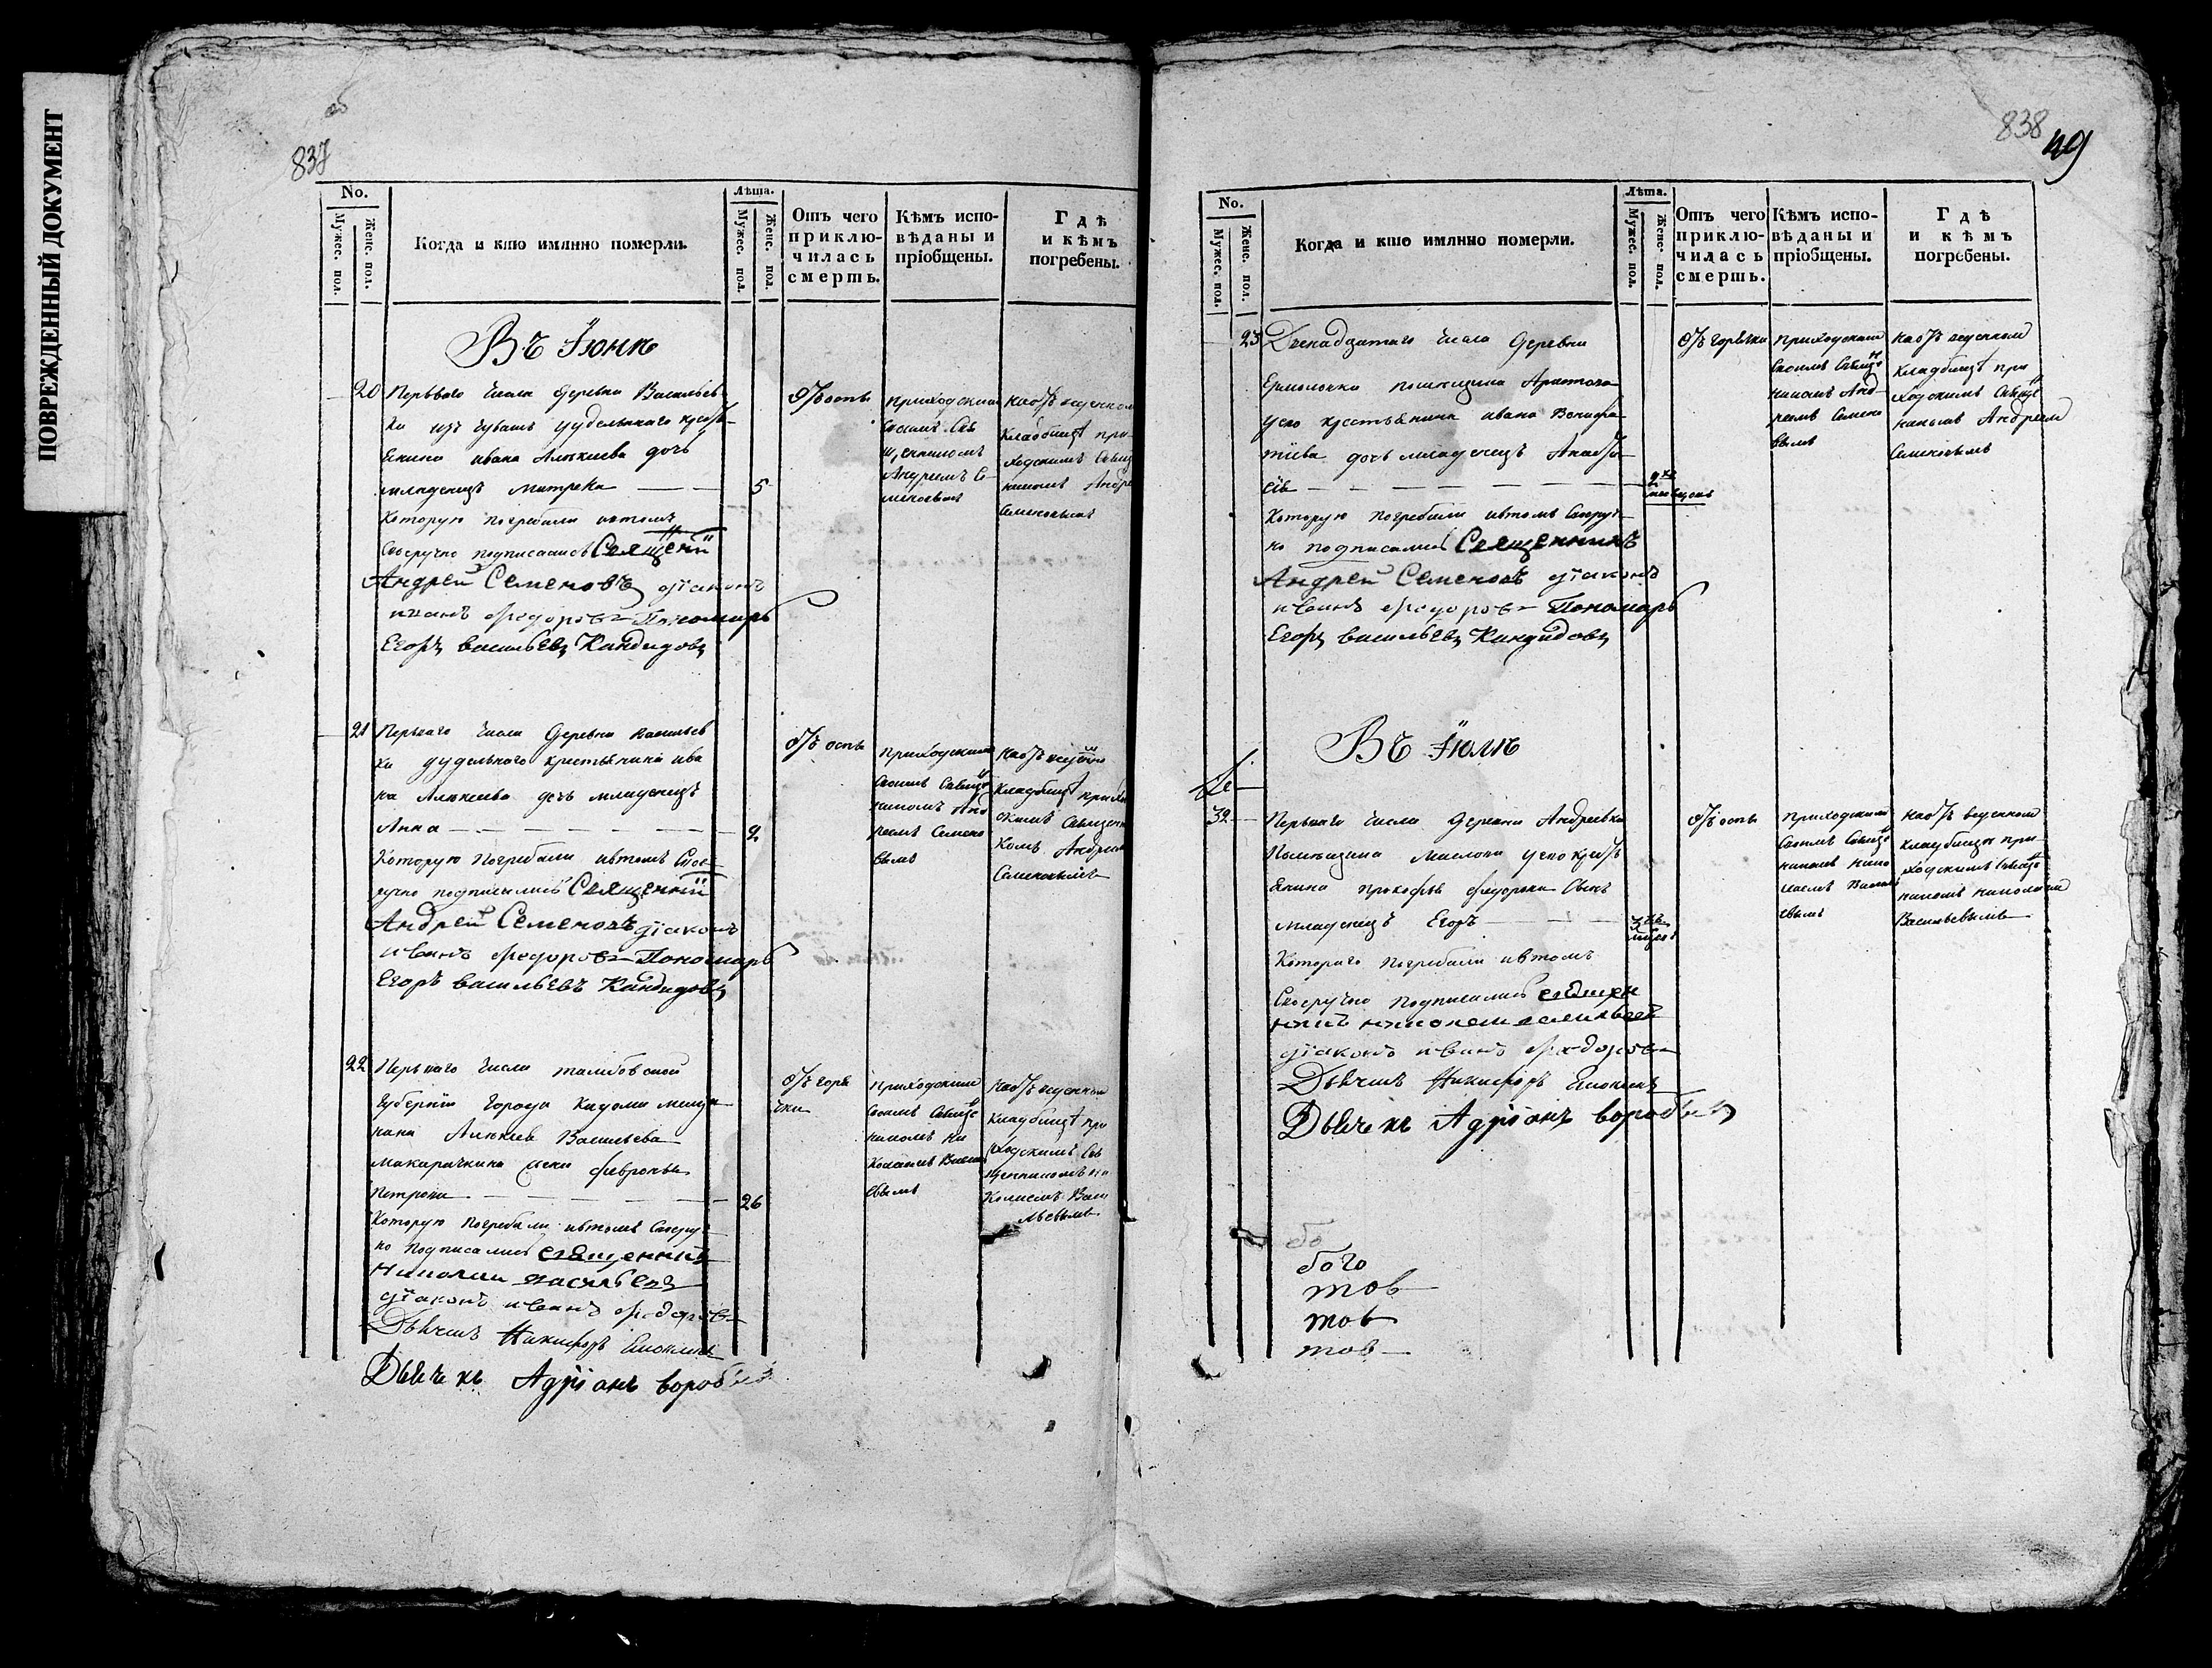 ПОВРЕЖДЕННЫЙ ДОКУМЕНТ
об
837
No.
Мужес. пол.
Женс. пол.
Когда и кто имянно померли.
Лѣта.
Мужес. пол.
Женс. пол.
Отъ чего приклю-
чилась смерть.
Кѣмъ испо-
вѣданы и
пріобщены.
Гдѣ
и кѣмъ
погребены.
Въ Іюнѣ
20
Перьваго числа деревни Васильев
ки изъ чувашъ удельнаго кресть
янина ивана Алексеева дочь
младенецъ Матрена
5
Которую погребали ивтомъ
Своеручно подписались Священникъ
Андрей Семеновъ діаконъ
иванъ федоровъ Пономарь
Егоръ васильевъ Кандидовъ
Отъ оспы
приходскимъ
своимъ Свя
щенникомъ
Андреемъ Се
меновымъ
на отведенномъ
кладбищѣ при
ходскимъ Священ
никомъ Андре
Семеновымъ
21
Перьваго числа деревни васильев
ки удельнаго крестьянина ива
на Алексеева дочь младенецъ
Анна
2
Которую погребали ивтомъ Свое
ручно подписались Священникъ
Андрей Семеновъ діаконъ
иванъ федоровъ Пономарь
Егоръ васильевъ Кандидовъ
отъ оспы
приходскимъ
своимъ Свяще
никомъ Анд
реемъ Семено
вымъ
на отведенномъ
кладбищѣ прихо
скимъ Священни
комъ Андреемъ
Семеновымъ
22
Перьваго числа тамбовской
губерніи города Кадома меща
нина Алексея Васильева
Макарачкина жена февронья
Петрова
26
Которую погребали ивтомъ Своеруч
но подписались священникъ
Николай васильевъ
діаконъ иванъ федоровъ
Дьячекъ Никифоръ
Дьячекъ Адріанъ воробьевъ
отъ горя
чки
приходскимъ
своимъ Свяще
никомъ Ни
колаемъ Василь
евымъ
на отведенномъ
кладбищѣ при
ходскимъ Свя
щенникомъ Ни
колаемъ Васи
льевымъ
838
49
No.
Мужес. пол.
Женс. пол.
Когда и кто имянно померли.
Лѣта.
Мужес. пол.
Женс. пол.
Отъ чего приклю-
чилась смерть.
Кѣмъ испо-
вѣданы и
пріобщены.
Гдѣ
и кѣмъ
погребены.
23
Двенадцатаго числа деревни
Ермоловки помещика
крестьянина ивана Вонифа
тіева дочь младенецъ Анаста
сія
2хъ
месяцовъ
Которую погребали ивтомъ Своеруч
но подписались Священникъ
Андрей Семеновъ діаконъ
иванъ федоровъ Пономарь
Егоръ васильевъ Кандидовъ
отъ горячки
приходскимъ
своимъ Священ
никомъ Анд
реемъ Семено
вымъ
на отведенномъ
кладбищѣ при
ходскимъ Свяще
никомъ Андреемъ
Семеновымъ
Въ Іюлѣ
32
Перьваго числа деревни Андреевки
Помещика Маслова крестъ
янина прокофья федорова сынъ
младенецъ Егоръ
3хъ
Котораго погребали ивтомъ
Своеручно подписались священ
никъ николай васильевъ
діаконъ иванъ федоровъ
Дьячекъ Никифоръ
Дьячекъ Адріанъ воробьевъ
отъ оспы
приходскимъ
своимъ Свяще
никомъ Нико
лаемъ Василь
евымъ
на отведенномъ
кладбищѣ при
ходскимъ Свяще
никомъ николаемъ
Васильевымъ
бо
бого
тов
тов
тов